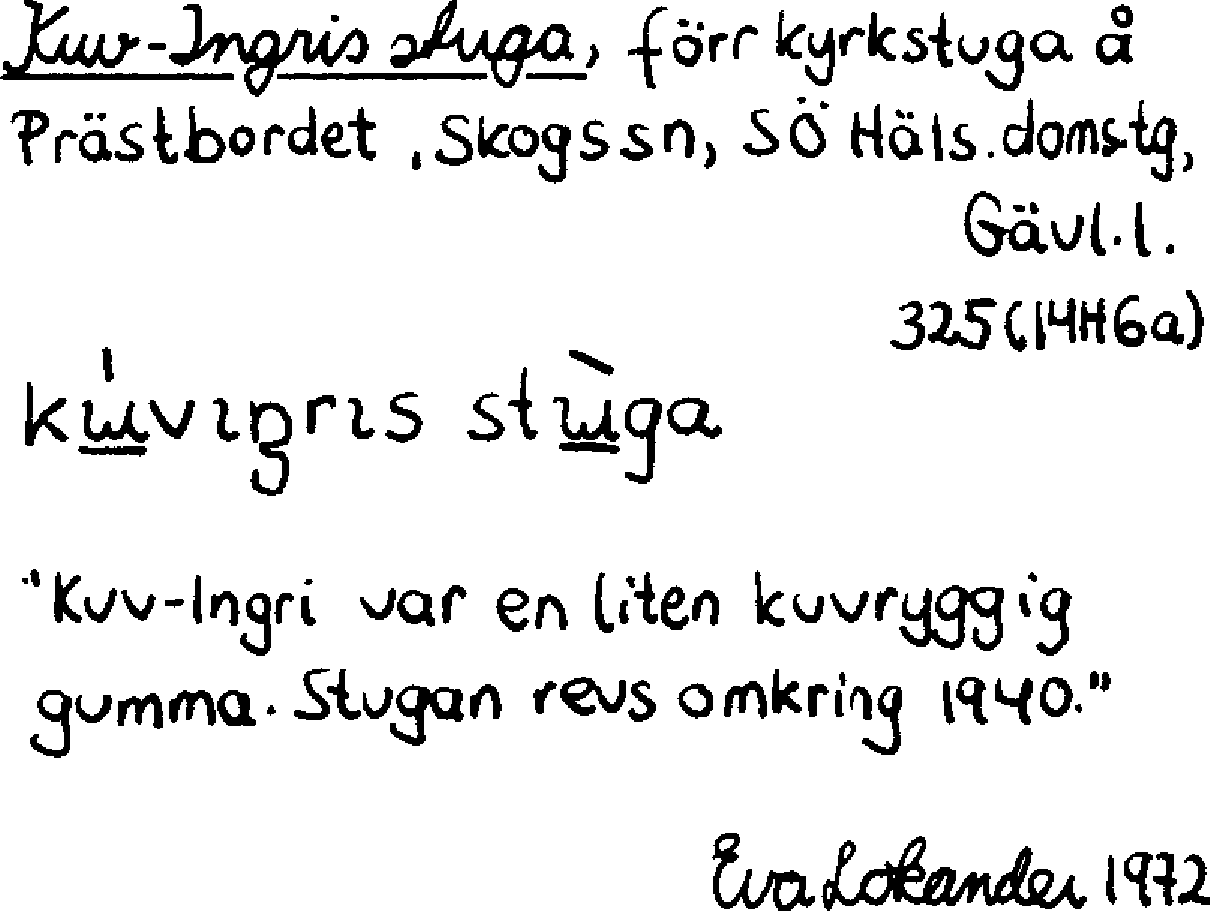 Kuv-Ingris stuga, förr kyrkstuga å
Prästbordet, Skogs sn, SÖ Häls. domstg,
Gävl. l.
325 (14H6a)
kɯ̲́vıŋrıs stɯ̲̀ga
"Kuv-Ingri var en liten kuvryggig
gumma. Stugan revs omkring 1940."
Eva Lokander 1972